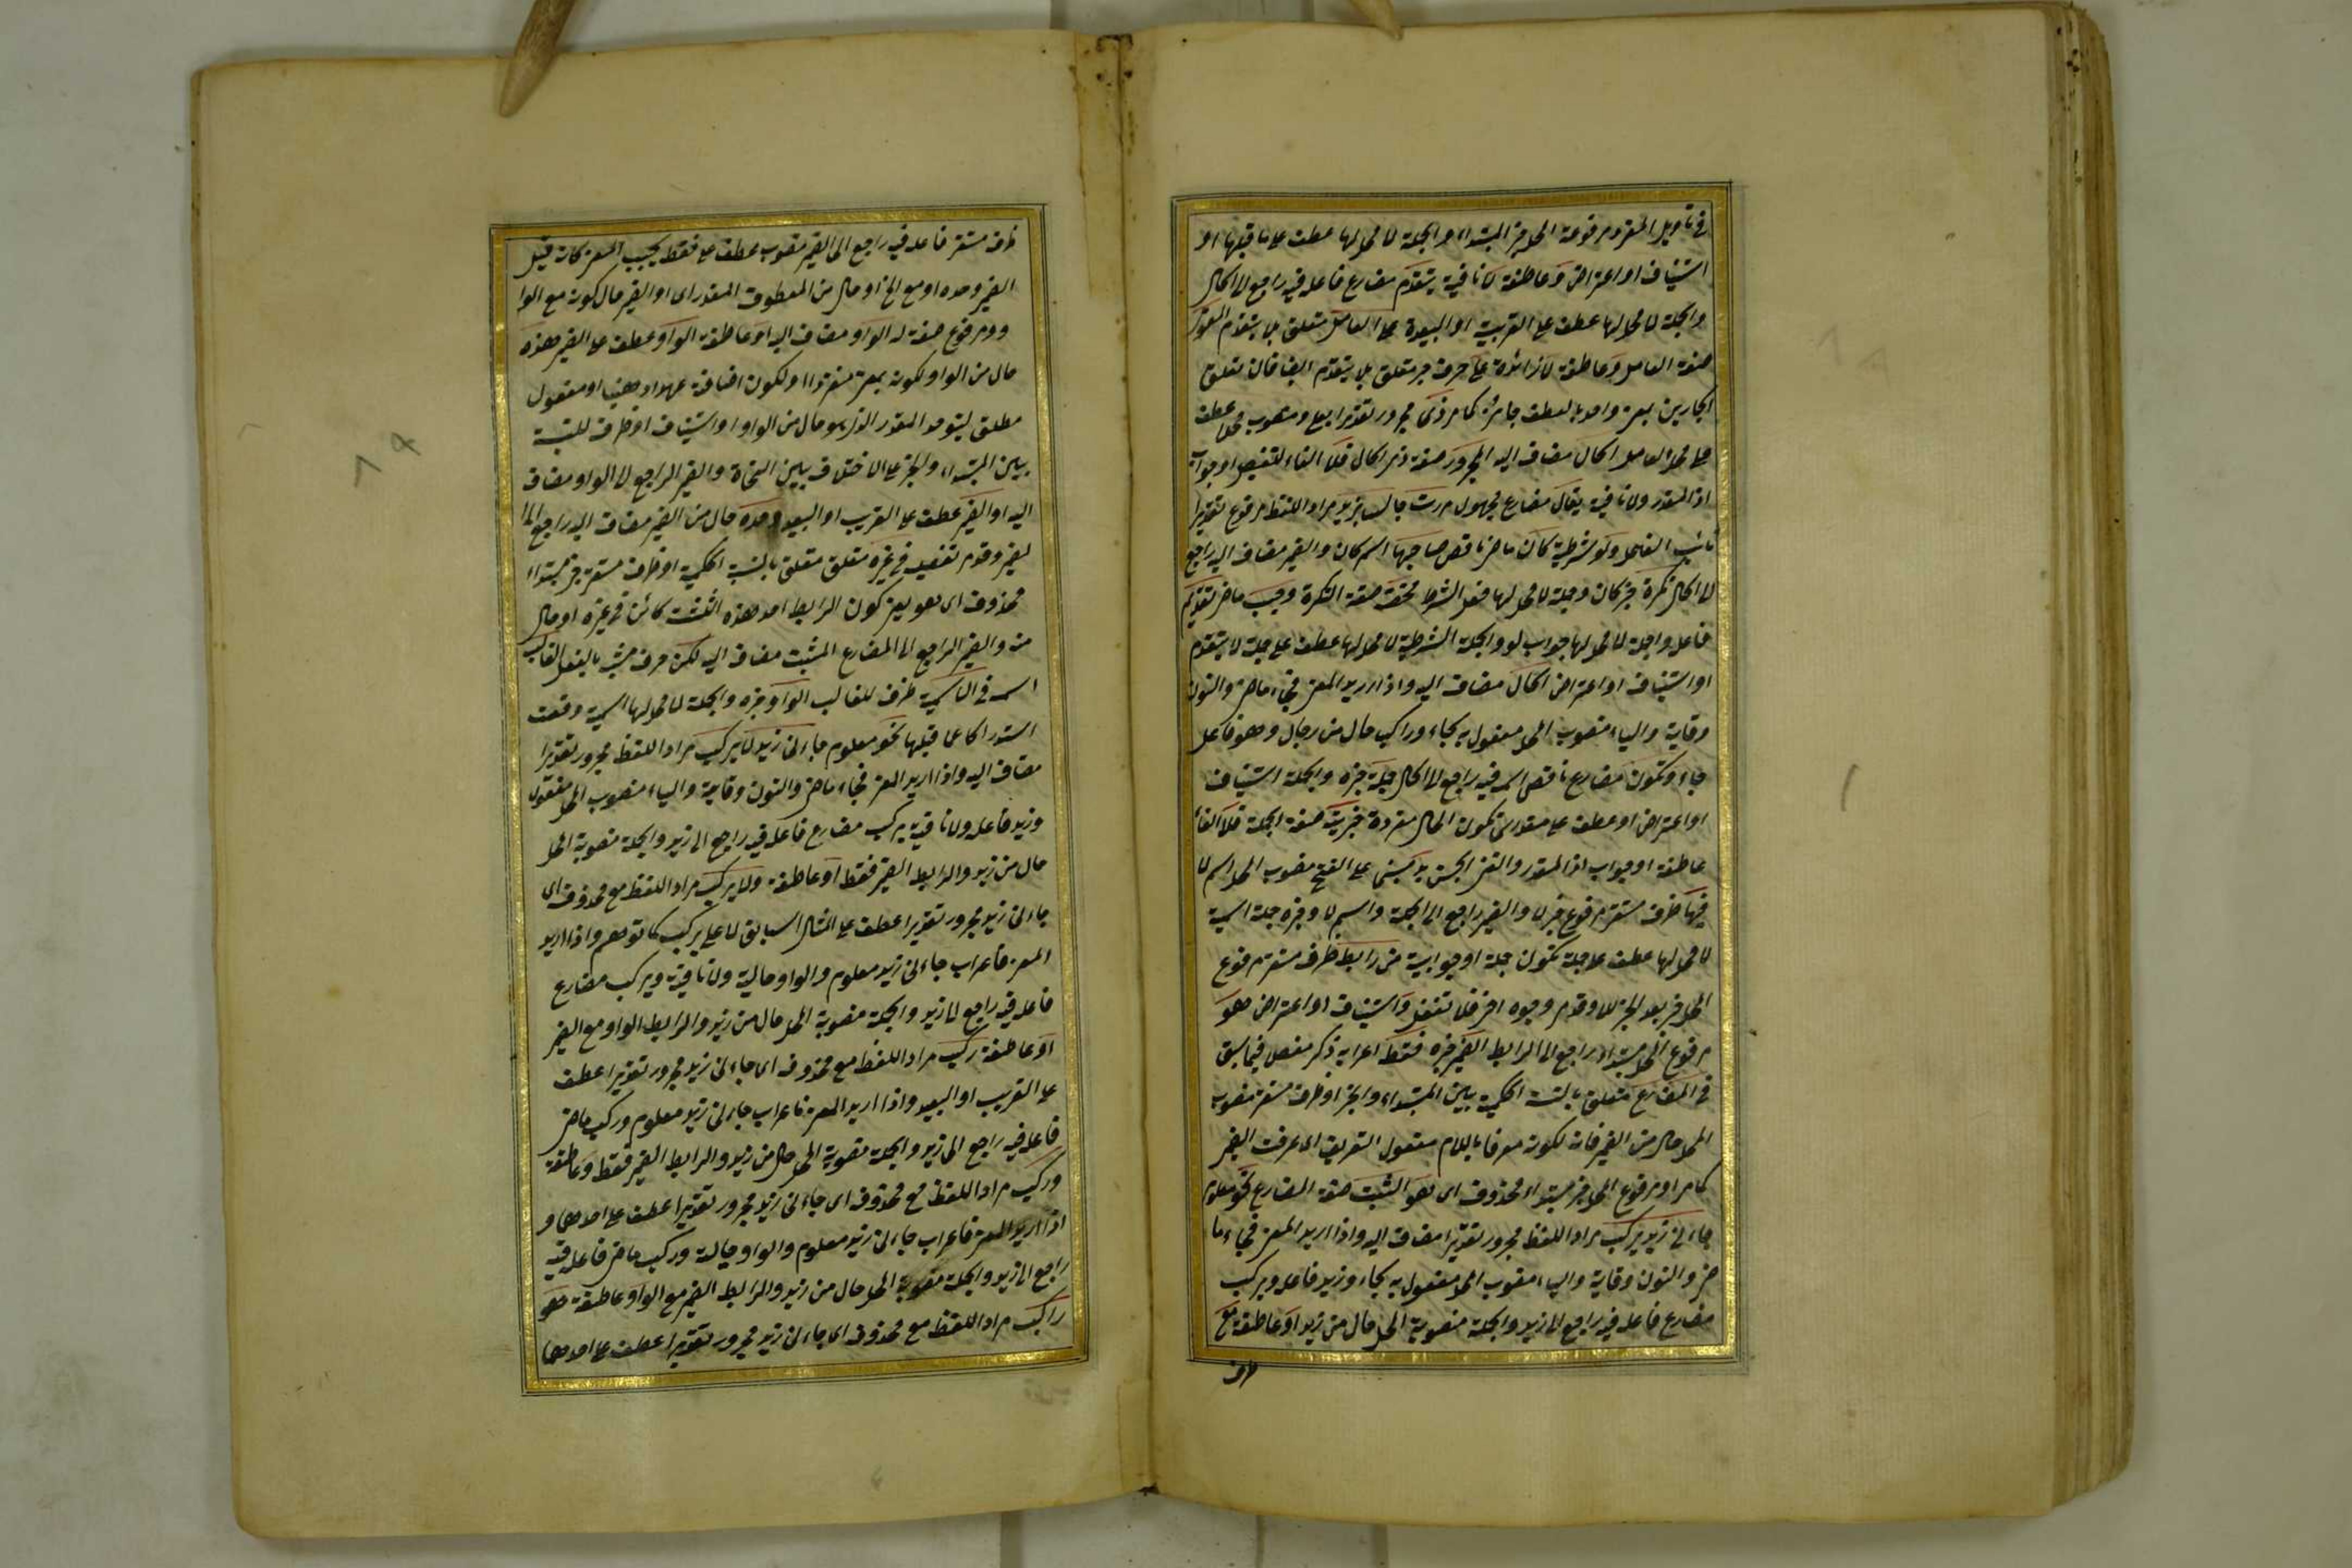 في تأويل المفرد مرفوعة المحل خبر المبتداء والجملة لا محل لها عطف على ما قبلها او
استيناف او اعتراض وعاطفة لا نافية يتقدم مضارع فاعله فيه راجع الى الحال
والجملة لا محل لها عطف على القريبة او البعيدة على العامل متعلق بلا يتقدم المعنوى
صفة العامل وعاطفة لا زائدة على حرف جر متعلق بلا يتقدم ايضا فان تعلق
الجارين بمعنى واحد بالعطف جائز كما مر ذى مجرور تقديرا بعلى ومنصوب محلا عطف
على محل العامل الحال مضاف اليه المجرور صفة ذى الحال فلا الفاء للتفصيل او جواب
اذا المقدر ولا نافية يقال مضارع مجهول مررت جالسا بزيد مراد اللفظ مرفوع تقديرا
نائب الفاعل ولو شرطية كان ماض ناقص صاحبها اسم كان والضمير مضاف اليه راجع
الى الحال نكرة خبر كان وجملة لا محل لها فعل الشرط محضة صفة النكرة وجب ماض تقديم
فاعله والجملة لا محل لها جواب لو والجملة الشرطية لا محل لها عطف على جملة لا يتقدم
او استيناف او اعتراض الحال مضاف اليه واذا اريد المعنى فجاء ماض والنون
وقاية والياء منصوب المحل مفعول به لجاء وراكبا حال من رجال وهو فاعل
جاء وتكون مضارع ناقص اسمه فيه راجع الى الحال جملة خبره والجملة استيناف
او اعتراض او عطف على مقدر اى تكون الحال مفردة خبرية صفة الجملة فلا الفاء
عاطفة او جواب اذا المقدر ولا لنفى الجنس بد مبنى على الفتح منصوب المحل اسم لا
فيها ظرف مستقر مرفوع خبر لا والضمير راجع الى الجملة واسم لا وخبره جملة اسمية
لا محل لها عطف على جملة تكون جملة او جوابية من رابط ظرف مستقر مرفوع
المحل خبر بعد الخبر للا وقد مر وجوه اخر فلا تغفل واستيناف او اعتراض هو
مرفوع المحل مبتداء راجع الى الرابط الضمير خبره فقط اعرابه ذكر مفصلا فيما سبق
في المضارع متعلق بالنسبة الحكمية بين المبتداء والخبر او ظرف مستقر منصوب
المحل حال من الضمير فانه لكونه معرفا باللام مفعول التعريف اى عرفت الضمير
كما مر او مرفوع المحل خبر مبتداء محذوف اى هو المثبت صفة المضارع نحو معلوم
جاءنى زيد يركب مراد اللفظ مجرور تقديرا مضاف اليه واذا اريد المعنى فجاء ما
ض والنون وقاية والياء منصوب المحل مفعول به لجاء وزيد فاعله ويركب
مضارع فاعله فيه راجع الى زيد والجملة منصوبة المحل حال من زيد او عاطفة مع
ظرف
ظرف مستقر فاعله فيه راجع الى الضمير منصوب عطف على فقط بحسب المعنى كانه قيل
الضمير وحده او مع الخ او حال من المعطوف المقدر اى او الضمير حال كونه مع الوا
و ومرفوع صفة له الواو مضاف اليه او عاطفة الواو عطف على الضمير وحده
حال من الواو لكونه بمعنى منفردا او لكون اضافته عهدا ذهنيا او مفعول
مطلق ليتوحد المقدر الذى هو حال من الواو او استيناف او ظرف للنسبة
بين المبتداء والخبر على الاختلاف بين النحاة والضمير الراجع الى الواو مضاف
اليه او الضمير عطف على القريب او البعيد وحده حال من الضمير مضاف اليه راجع الى ا
لضمير وقد مر تفصيله في غيره متعلق متعلق بالنسبة الحكمية او ظرف مستقر خبر مبتداء
محذوف اى هو يعنى كون الرابط احد هذه الثلثة كائن في غيره او حال
منه والضمير الراجع الى المضارع المثبت مضاف اليه لكن حرف مشبه بالفعل الغالب
اسمه في الاسمية ظرف للغالب الواو خبره والجملة لا محل لها اسمية وقعت
استدراكا عما قبلها نحو معلوم جاءنى زيد لا يركب مراد اللفظ مجرور تقديرا
مضاف اليه واذا اريد المعنى فجاء ماض والنون وقاية والياء منصوب المحل مفعوله
وزيد فاعله ولا نافية يركب مضارع فاعله فيه راجع الى زيد والجملة منصوبة المحل
حال من زيد والرابط الضمير فقط او عاطفة ولا يركب مراد اللفظ مع محذوف اى
جاءنى زيد مجرور تقديرا عطف على المثال السابق لا على يركب كما توهم واذا اريد
المعنى فاعراب جاءنى زيد معلوم والواو حالية ولا نافية ويركب مضارع
فاعله فيه راجع الى زيد والجملة منصوبة المحل حال من زيد والرابط الواو مع الضمير
او عاطفة ركب مراد اللفظ مع محذوف اى جاءنى زيد مجرور تقديرا عطف
على القريب او البعيد واذا اريد المعنى فاعراب جاءنى زيد معلوم وركب ماض
فاعله فيه راجع الى زيد والجملة منصوبة المحل حال من زيد والرابط الضمير فقط وعاطفة
وركب مراد اللفظ مع محذوف اى جاءنى زيد مجرور تقديرا عطف على احدهما و
اذا اريد المعنى فاعراب جاءنى زيد معلوم والواو حالية وركب ماض فاعله فيه
راجع الى زيد والجملة منصوبة المحل حال من زيد والرابط الضمير مع الواو او عاطفة هو
راكب مراد اللفظ مع محذوف اى جاءنى زيد مجرور تقديرا عطف على احدهما
٨٩